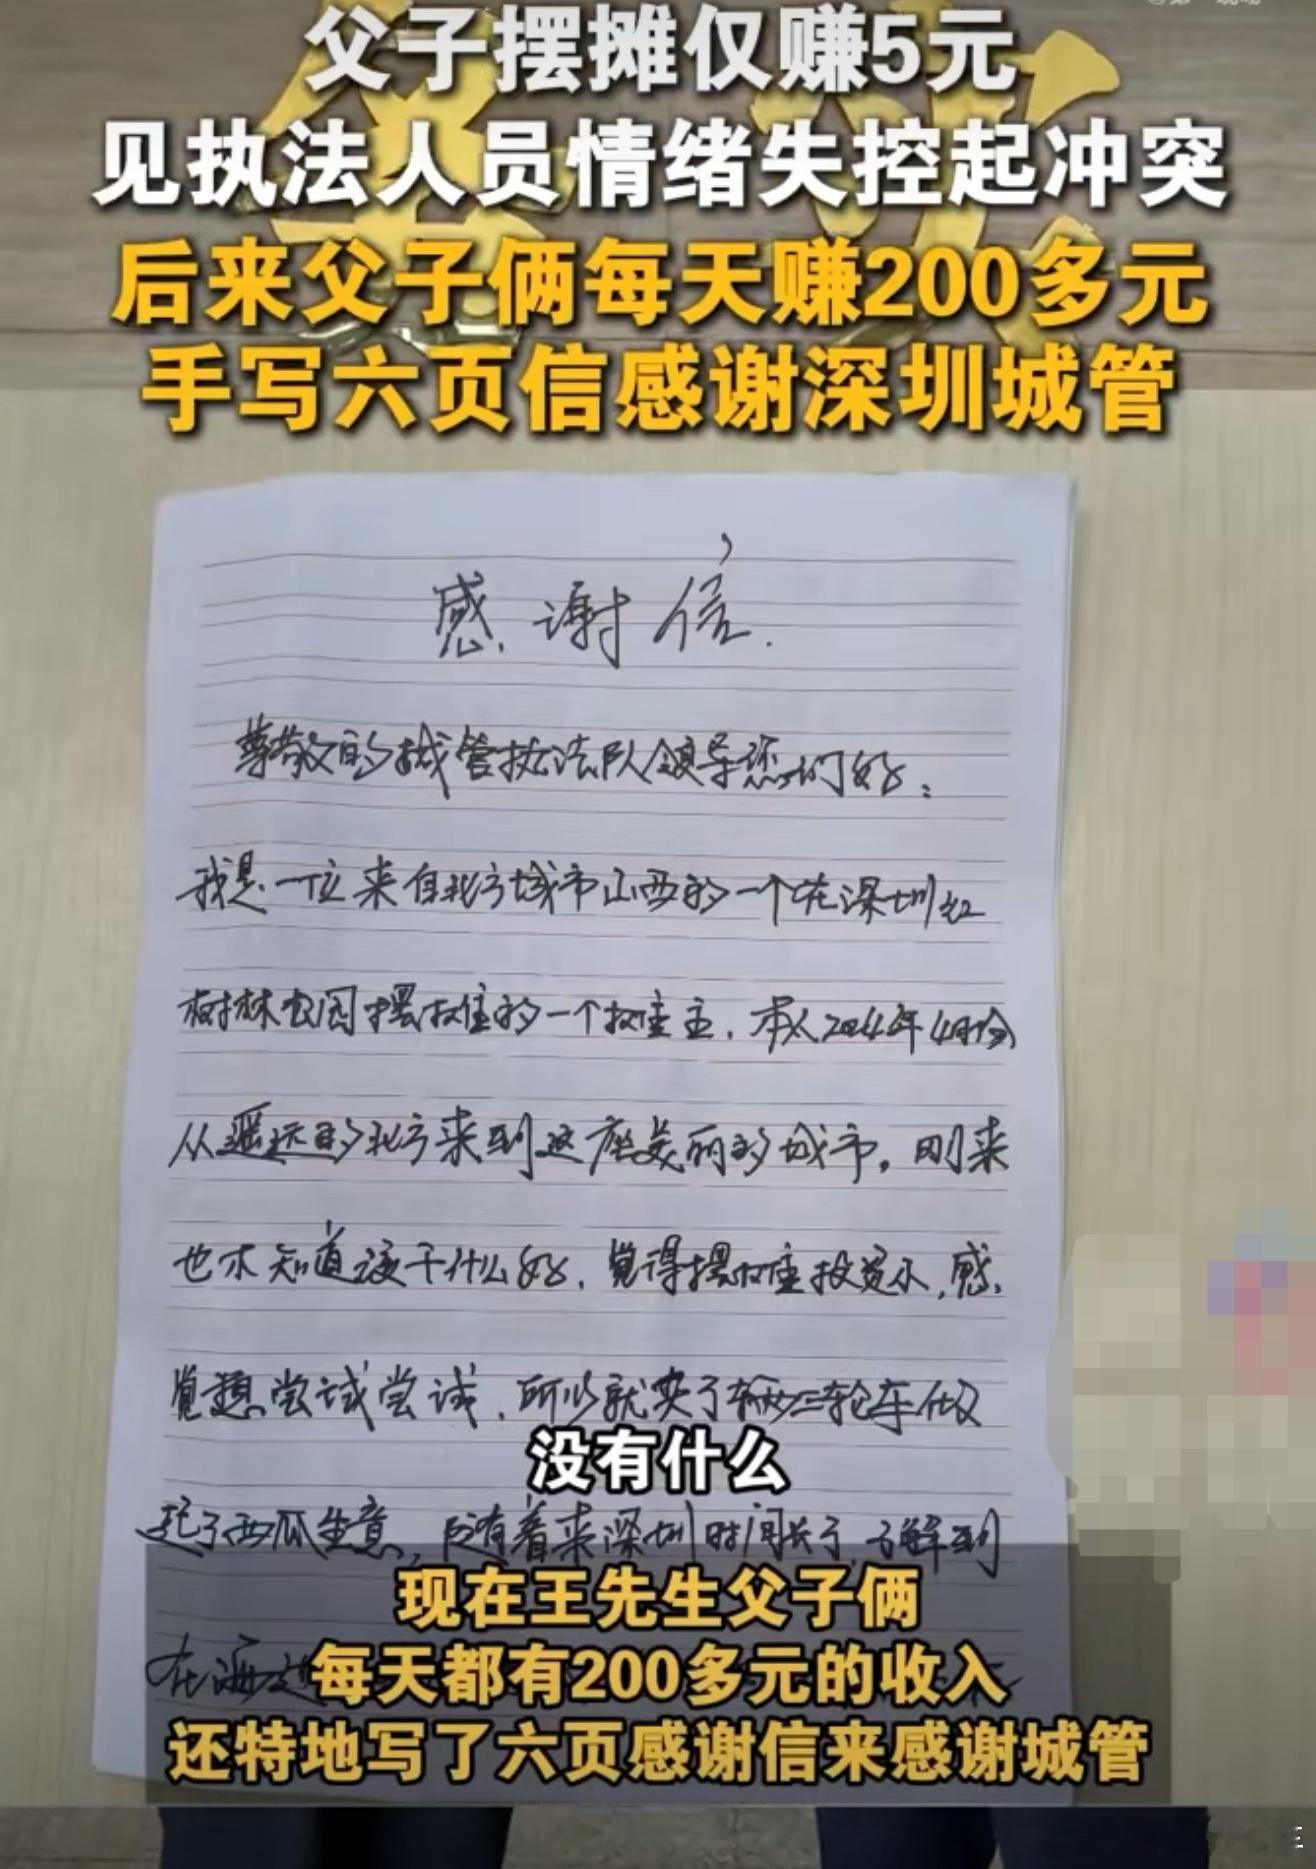 父子摆摊仅赚5元
见执法人员情绪失控起冲突
后来父子俩每天赚200多元
手写六页信感谢深圳城管
感谢信.
尊敬的城管执法队领导您们好:
我是一位来自北方城市山西的一个在深圳红
树林公园摆摊的一个摊主,本人2024年4月份
从遥远的北方来到这座美丽的城市。刚来
也不知道该干什么好,觉得摆摊投资小,感
觉想尝试尝试,所以就买了辆三轮车做
没有什么
起了西瓜生意,随着来深圳时间长了,了解到
在海边
现在王先生父子俩
每天都有200多元的收入
还特地写了六页感谢信来感谢城管